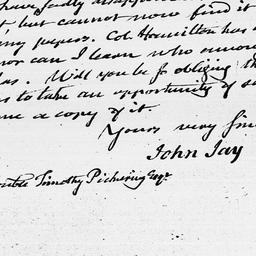 have sadly disappo
but cannot now find it
my papers. Col. Hamilton has
nor can I learn who
has. Will you be so obliging
as to take an opportunity of
me a copy of it.
Yours very sin
John Jay
Timothy Pickering Esqr.